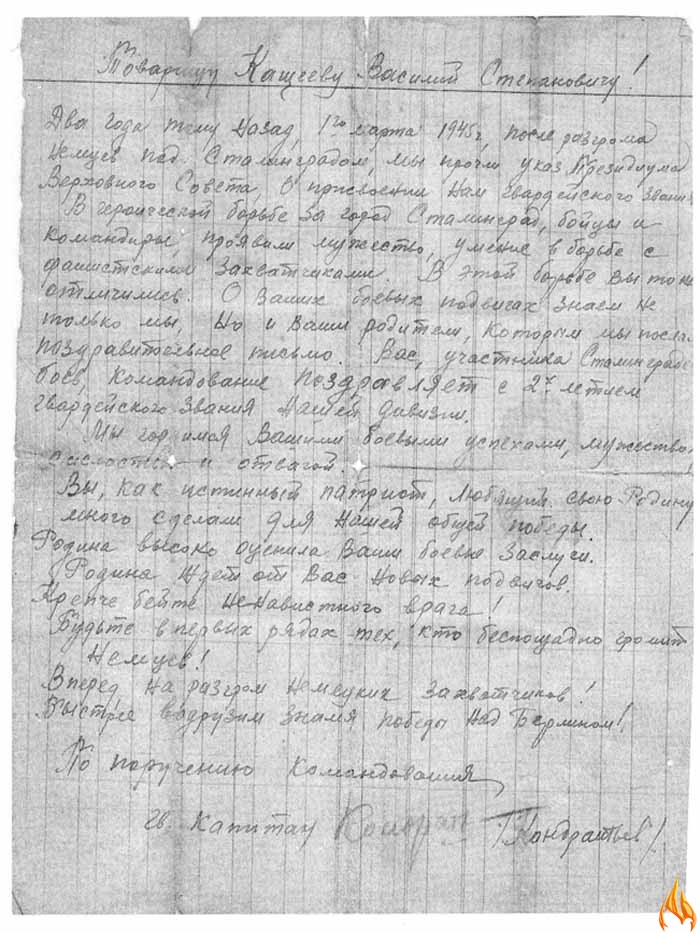 Товарищу Кащееву Василий Степановичу!
Два года тому назад, 1го марта 1945г, после разгрома
немцев под Сталинградом, мы прочли указ Президиума
Верховного Совета, о присвоении нам гвардейского звани
В героической борьбе за город Сталинград, бойцы и
командиры, проявили мужество, умение в борьбе с
фашистскими захватчиками. В этой борьбе вы
отличились. О Ваших боевых подвигах знаем не
только мы, но и Ваши родители, которым мы посла
поздравительное письмо. Вас, участника Сталинградс
боев, командование поздравляет с 2х летием
гвардейского звания нашей дивизии.
Мы гордимся Вашими боевыми успехами, мужество
и отвагой.
Вы, как истинный патриот, любящий свою Родину
много сделали для нашей общей победы.
Родина высоко оценила Ваши боевые заслуги.
Родина ждет от Вас новых подвигов.
Крепче бейте ненавистного врага!
Будьте в первых рядах тех, кто беспощадно громит
немцев!
Вперед на разгром немецких захватчиков!
Быстрее водрузим знамя победы над Берлином!
По поручению командования
гв. капитан /Кондратьев/.